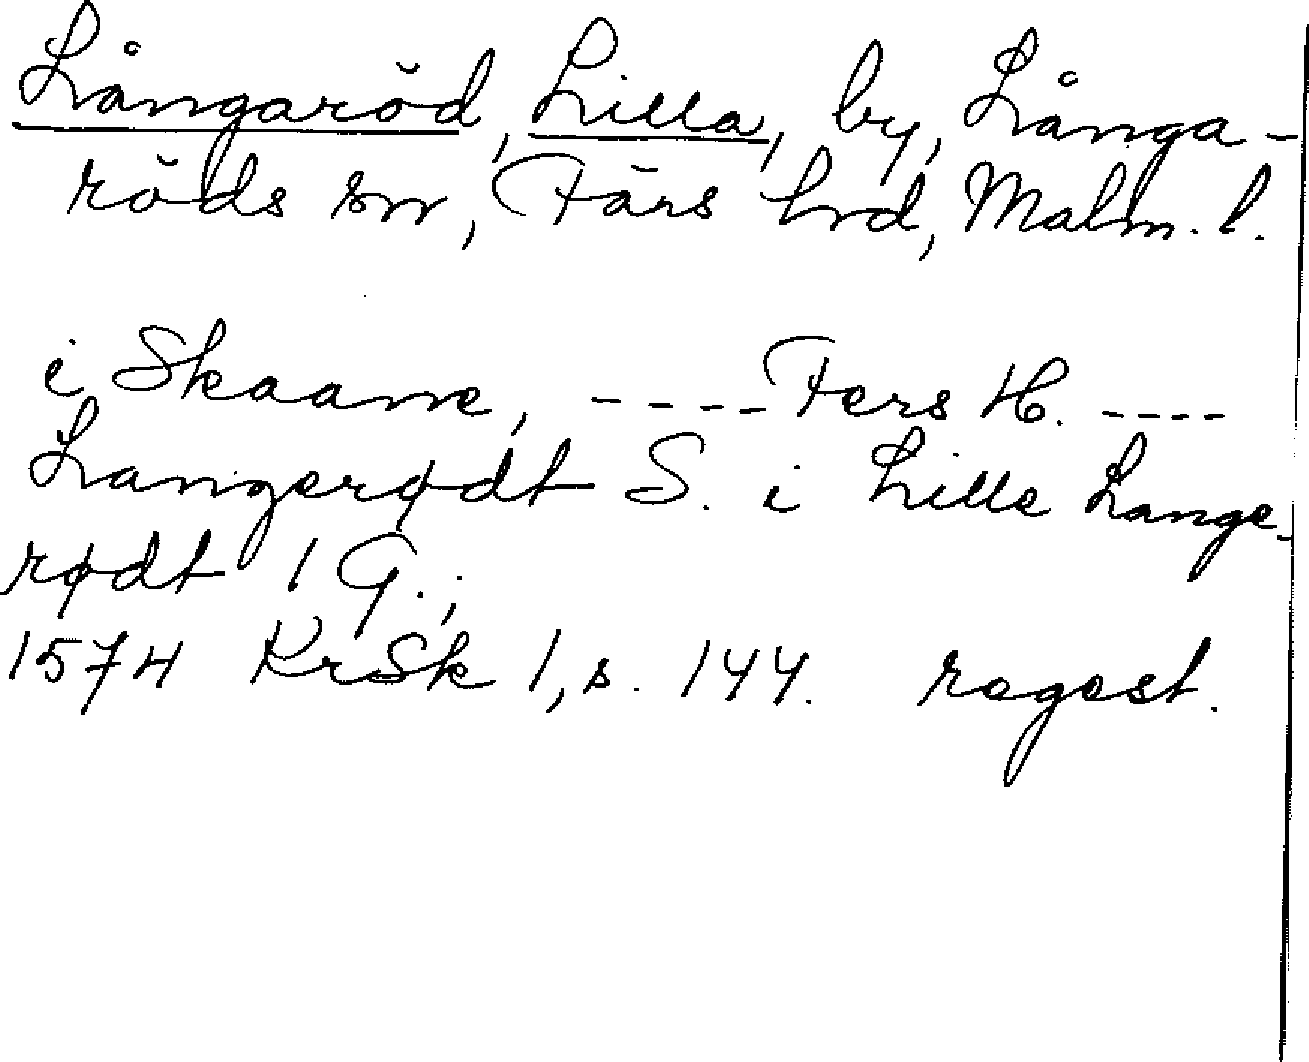 Långaröd, Lilla, by, Långa-
röds sn, Färs hrd, Malm. l.
i Skaane, ---- Fers H. ----
Langerødt S. i Lille Lange-
rødt 1 G.;
1574 KrSk 1, s. 144. regest.